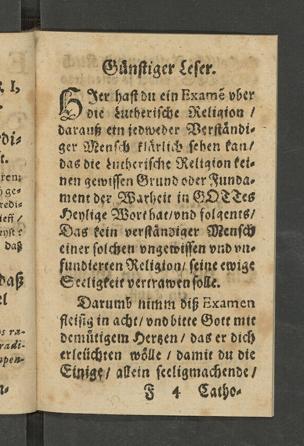 Günstiger Leser.
HJer hast du ein Examẽ vber
die Lutherische Religion /
darauß ein jedweder Verständi-
ger Mensch klärlich sehen kan/
das die Lutherische Religion kei-
nen gewissen Grund oder Funda-
ment der Warheit in GOTTes
Heylige Wort hat/vnd folgents/
Das kein verständiger Mensch
einer solchen vngewissen vnd vn-
fundierten Religion/ seine ewige
Seeligkeit vertrawen solle.
Darumb nimm diß Examen
fleisig in acht/ vnd bitte Gott mit
demütigem Hertzen/ das er dich
erleüchten wölle / damit du die
Einige/ allein seeligmachende/
F 4 Catho-